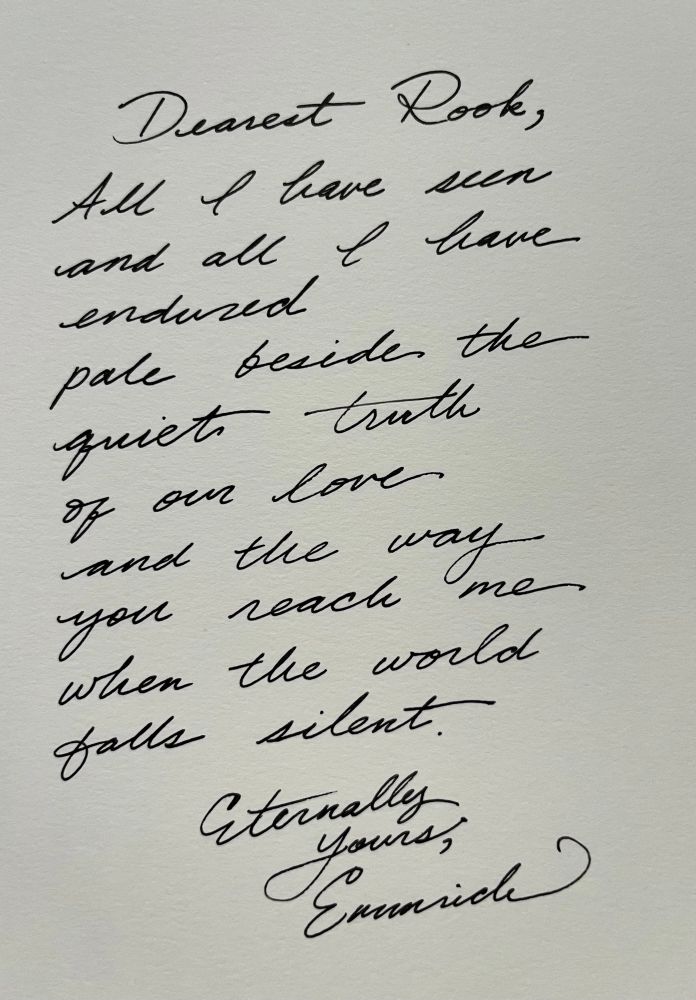 Dearest Rook,
All I have seen
and all I have
endured
pale beside the
quiet truth
of our love
and the way
you reach me
when the world
falls silent.
Eternally
yours,
Emmrich